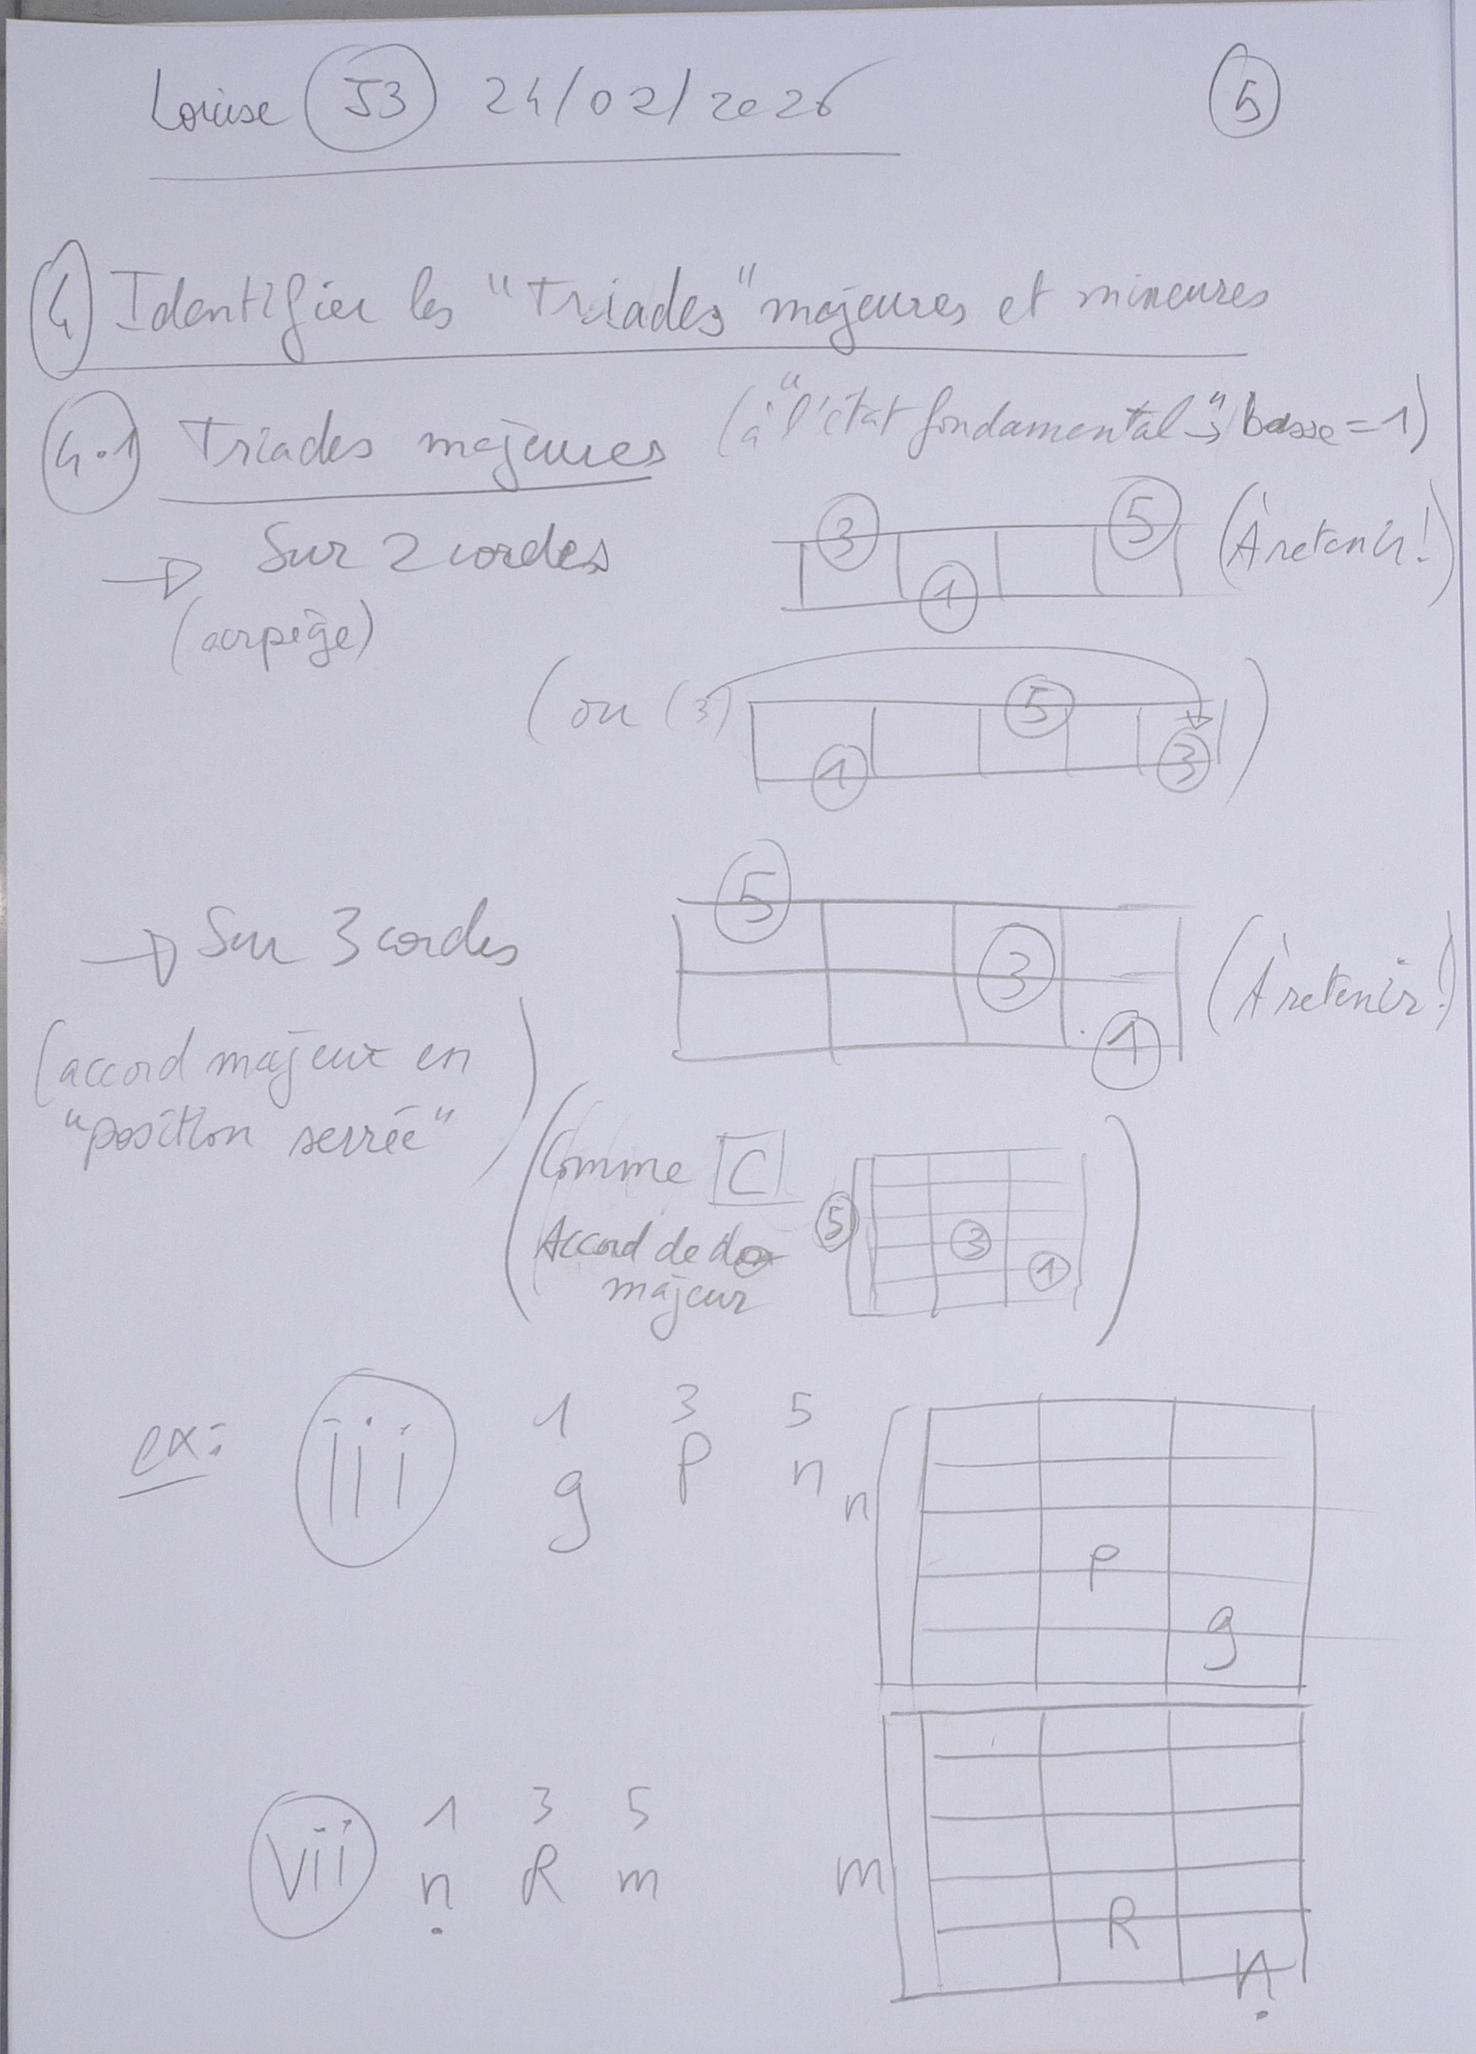 Louise J3 24/02/2026 5
4 Identifier les "Triades" majeures et mineures
4.1 Triades majeures (à "l'état fondamental" → basse = 1)
→ Sur 2 cordes 3 1 5 (À retenir!)
(arpège)
(ou (3) 1 5 3)
→ Sur 3 cordes 5 3 1 (À retenir!)
(accord majeur en
"position serrée")
(Comme C 5 3 1)
Accord de do
majeur
1 3 5
ex: iii g P n n
P
g
1 3 5
vii ṇ R m m
R
ṇ